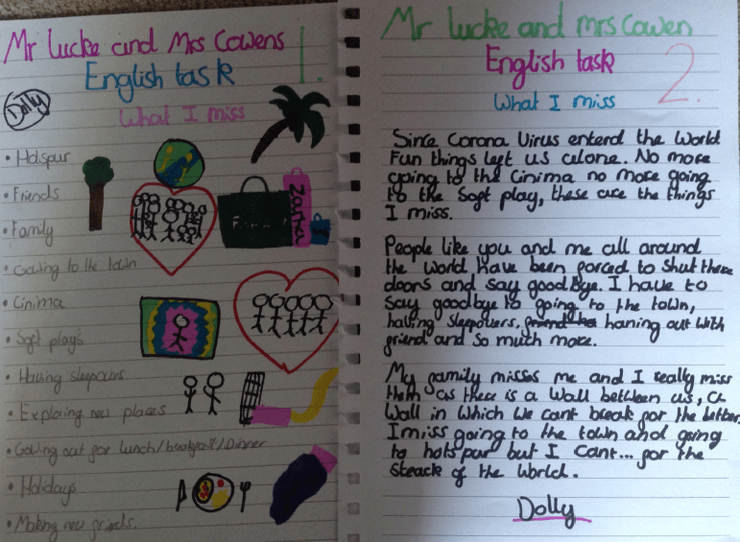 Mr Lucke and Mrs Cowens
1.
English task
Dolly
What I miss
• Hotspur
• Friends
• Family
• Going to the town
• Cinima
• Soft play's
• Having sleepovers
• Exploring new places
• Going out for lunch/breakfast/Dinner
• Holidays
• Making new friends.
Zara
Mr Lucke and Mrs Cowen
English task
2.
What I miss
Since Corona Virus enterd the World
Fun things left us alone. No more
going to the Cinima no more going
to the Soft play, these are the things
I miss.
People like you and me all around
the World have been forced to shut there
doors and say goodBye. I have to
say goodbye to going to the town,
having sleepovers, haning out with
friend and so much more.
My family misses me and I really miss
them as there is a Wall between us, a
Wall in which we cant break for the better.
I miss going to the town and going
to hotspur but I Cant... for the
Steack of the World.
Dolly